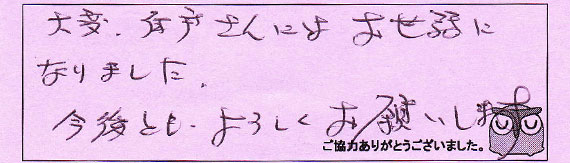 大変、戸さんには お世話に
なりました。
今後とも よろしく お願いします
ご協力ありがとうございました。